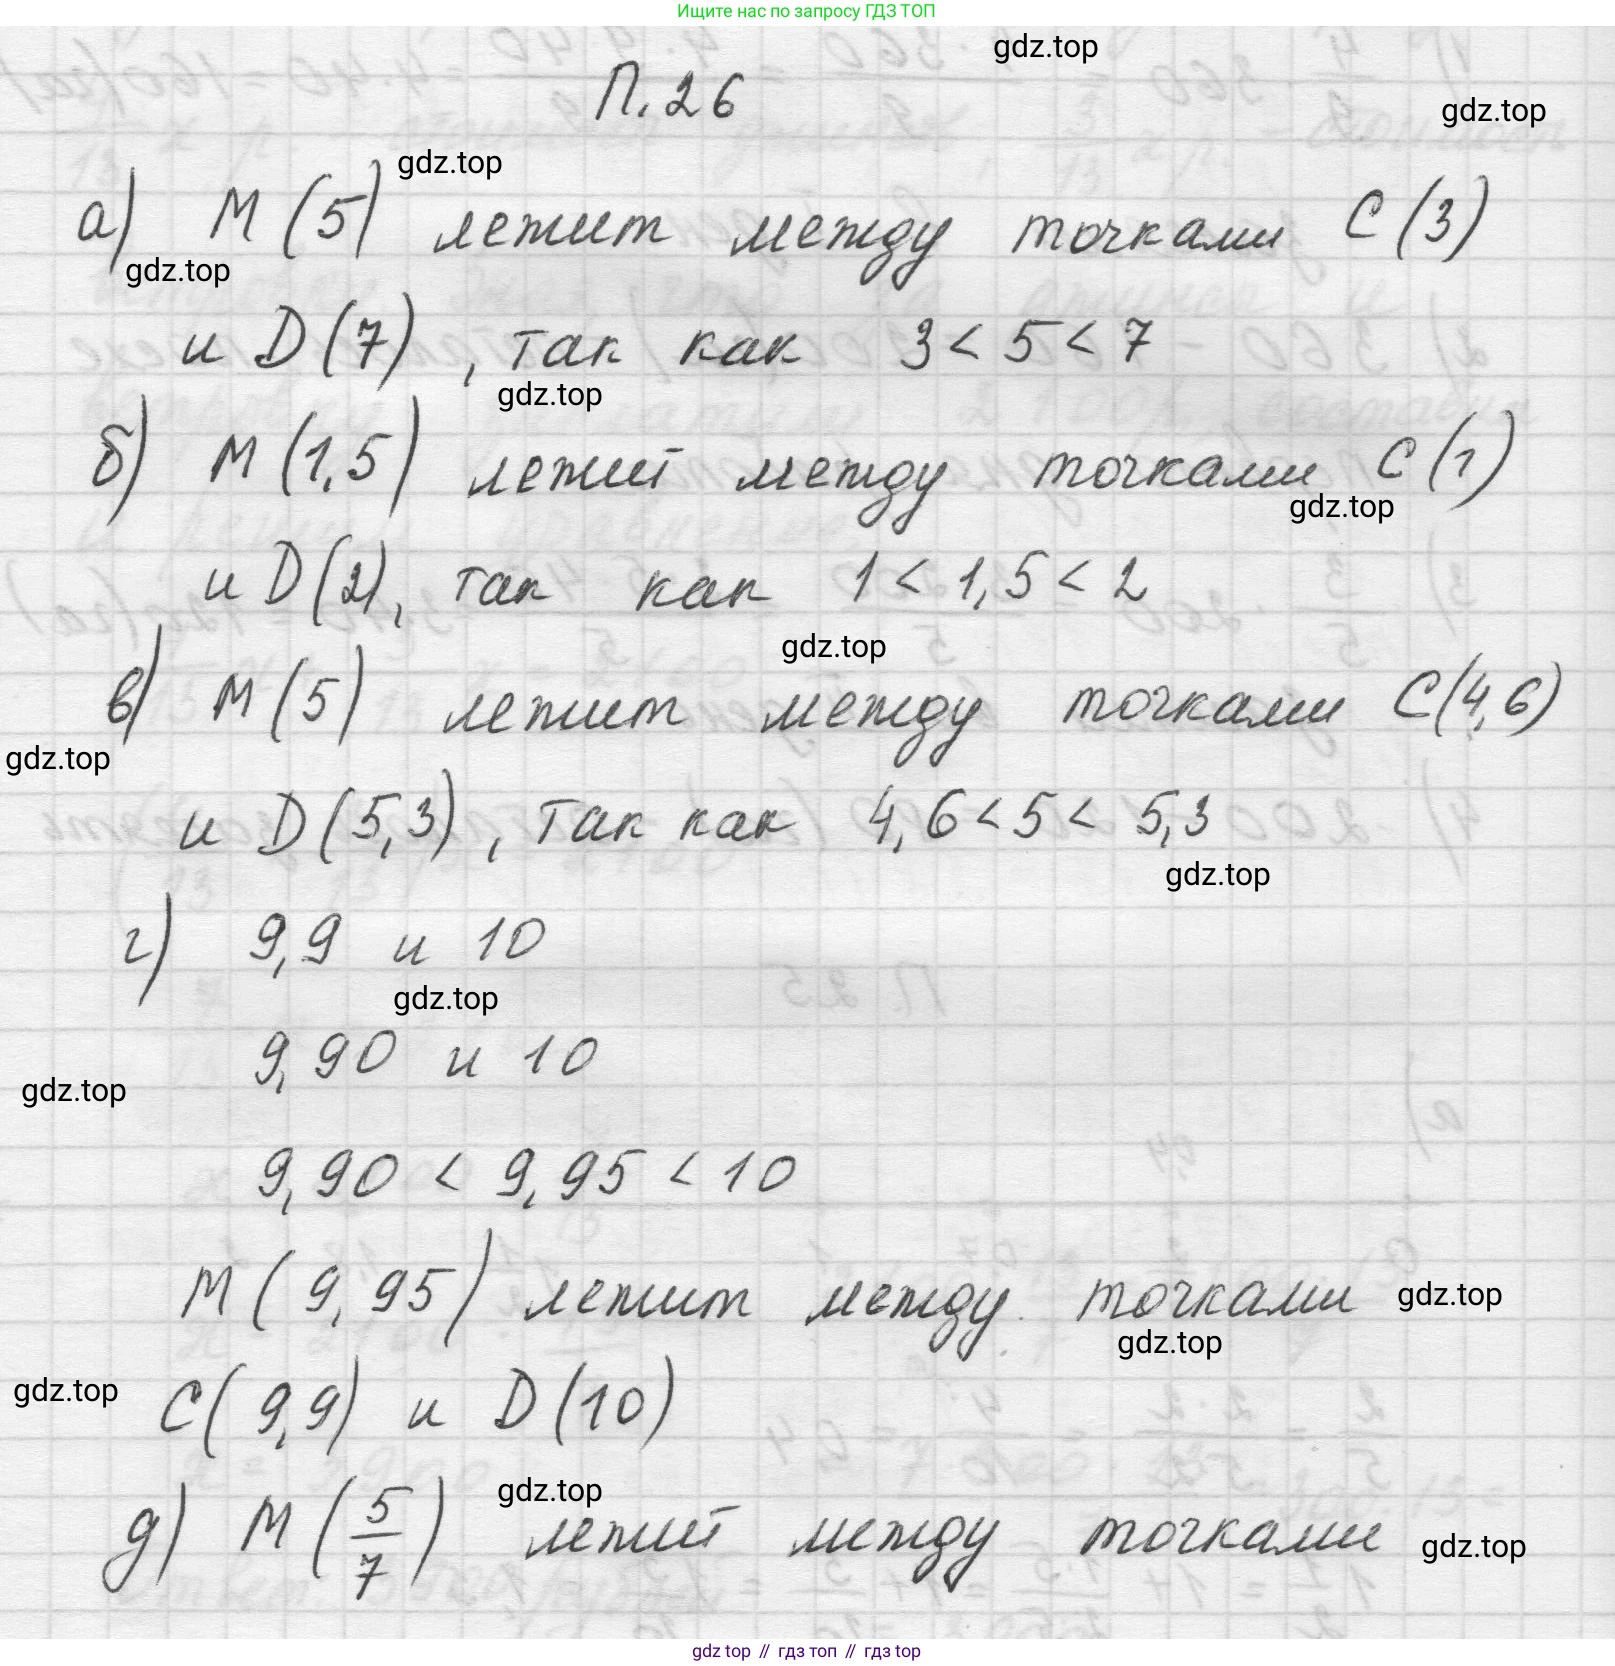 Ищите нас по запросу ГДЗ ТОП
gdz.top
П.26
gdz.top
gdz.top
а) М(5) лежит между точками С(3)
gdz.top
и D(7), так как 3<5<7
gdz.top
б) М(1,5) лежит между точками С(1)
gdz.top
и D(2), так как 1<1,5<2
gdz.top
в) М(5) лежит между точками С(4,6)
gdz.top
и D(5,3), так как 4,6<5<5,3
gdz.top
г) 9,9 и 10
gdz.top
9,90 и 10
gdz.top
9,90 < 9,95 < 10
М(9,95) лежит между точками
gdz.top
gdz.top
gdz.top
С(9,9) и D(10)
gdz.top
д) М(5/7) лежит между точками
gdz.top
gdz top // гдз топ // гдз top